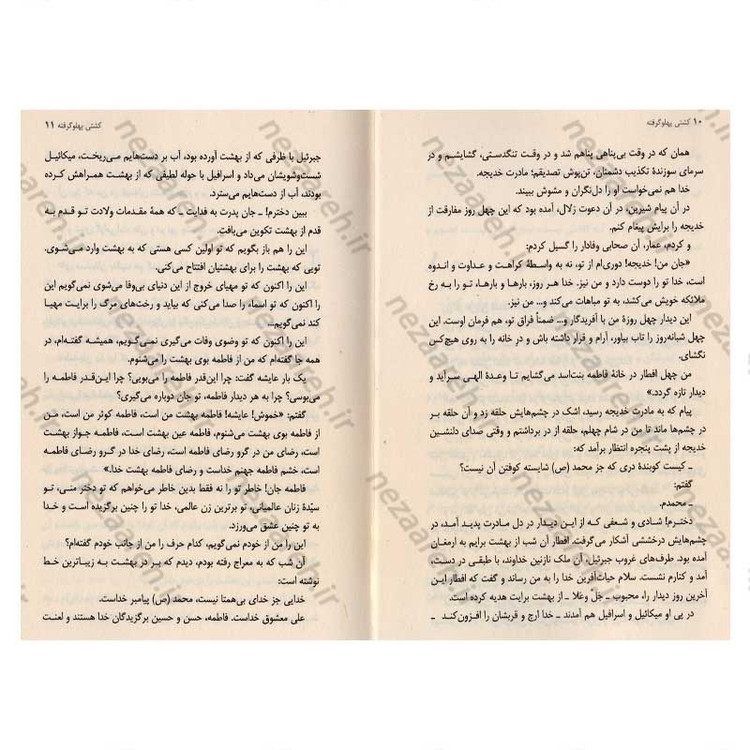 ۱۰ کشتی پهلوگرفته
همان که در وقت بی‌پناهی پناهم شد و در وقت تنگدستی، گشایشم و در
سرمای سوزندهٔ تکذیب دشمنان، تن‌پوش تصدیقم؛ مادرت خدیجه.
خدا هم نمی‌خواست او را دل‌نگران و مشوش ببیند.
در آن پیام شیرین، در آن دعوت زلال، آمده بود که این چهل روز مفارقت از
خدیجه را برایش پیغام کنم.
و کردم، عمار، آن صحابی وفادار را گسیل کردم:
«جان من! خدیجه! دوری‌ام از تو، نه به واسطهٔ کراهت و عداوت و اندوه
است، خدا تو را دوست دارد و من نیز. خدا هر روز، بارها و بارها، تو را به رخ
ملائکه خویش می‌کشد، به تو مباهات می‌کند و... من نیز.
این دیدار چهل روزهٔ من با آفریدگار و ـ ضمناً فراق تو، هم فرمان اوست. این
چهل شبانه‌روز را تاب بیاور، آرام و قرار داشته باش و در خانه را به روی هیچ‌کس
نگشای.
من چهل افطار در خانهٔ فاطمه بنت‌اسد می‌گشایم تا وعدهٔ الهی سرآید و
دیدار تازه گردد.»
پیام که به مادرت خدیجه رسید، اشک در چشم‌هایش حلقه زد و آن حلقه بر
در چشم‌ها ماند تا من در شام چهلم، حلقه از در برداشتم و وقتی صدای دلنشین
خدیجه از پشت پنجره انتظار برآمد که:
ـ کیست کوبندهٔ دری که جز محمد (ص) شایسته کوفتن آن نیست؟
گفتم:
ـ محمدم.
دخترم! شادی و شعفی که از این دیدار در دل مادرت پدید آمد، در
چشم‌هایش درخششی آشکار می‌گرفت. افطار آن شب از بهشت برایم به ارمغان
آمده بود. طرف‌های غروب جبرئیل، آن ملک نازنین خداوند، با طبقی در دست،
آمد و کنارم نشست. سلام حیات‌آفرین خدا را به من رساند و گفت که افطار این
آخرین روز دیدار را، محبوب ـ جلّ وعَلا ـ از بهشت برایت هدیه کرده است.
در پی او میکائیل و اسرافیل هم آمدند ـ خدا ارج و قربشان را افزون‌کند ـ
کشتی پهلوگرفته ۱۱
جبرئیل با ظرفی که از بهشت آورده بود، آب بر دست‌هایم می‌ریخت، میکائیل
شست‌وشویشان می‌داد و اسرافیل با حوله لطیفی که از بهشت همراهش کرده
بودند، آب از دست‌هایم می‌سترد.
ببین دخترم! ـ جان پدرت به فدایت ـ که همهٔ مقدمات ولادت تو قدم به
قدم از بهشت تکوین می‌یافت.
این را هم باز بگویم که تو اولین کسی هستی که به بهشت وارد می‌شوی.
تویی که بهشت را برای بهشتیان افتتاح می‌کنی.
این را اکنون که تو مهیای خروج از این دنیای بی‌وفا می‌شوی نمی‌گویم این
را اکنون که تو اسماء را صدا می‌کنی که بیاید و رخت‌های مرگ را برایت مهیا
کند نمی‌گویم...
این را اکنون که تو وضوی وفات می‌گیری نمی‌گویم، همیشه گفته‌ام، در
همه جا گفته‌ام که من از فاطمه بوی بهشت را می‌شنوم.
یک بار عایشه گفت: چرا این‌قدر فاطمه را می‌بویی؟ چرا این‌قدر فاطمه را
می‌بوسی؟ چرا به هر دیدار فاطمه، تو جان دوباره می‌گیری؟
گفتم: «خموش! عایشه! فاطمه بهشت من است، فاطمه کوثر من است، من
از فاطمه بوی بهشت می‌شنوم، فاطمه عین بهشت است، فاطمه جواز بهشت
است، رضای من در گرو رضای فاطمه است، رضای خدا در گرو رضای فاطمه
است، خشم فاطمه جهنم خداست و رضای فاطمه بهشت خدا.»
فاطمه جان! خاطر تو را نه فقط بدین خاطر می‌خواهم که تو دختر منی، تو
سیّدهٔ زنان عالمیانی، تو برترین زن عالمی، خدا تو را چنین برگزیده است و خدا
به تو چنین عشق می‌ورزد.
این را من از خودم نمی‌گویم، کدام حرف را من از جانب خودم گفته‌ام؟
آن شب که به معراج رفته بودم، دیدم که بر در بهشت به زیباترین خط
نوشته است:
خدایی جز خدای بی‌همتا نیست، محمد (ص) پیامبر خداست.
علی معشوق خداست. فاطمه، حسن و حسین برگزیدگان خدا هستند و لعنت
nezaareh.ir
nezaareh.ir
nezaareh.ir
nezaareh.ir
nezaareh.ir